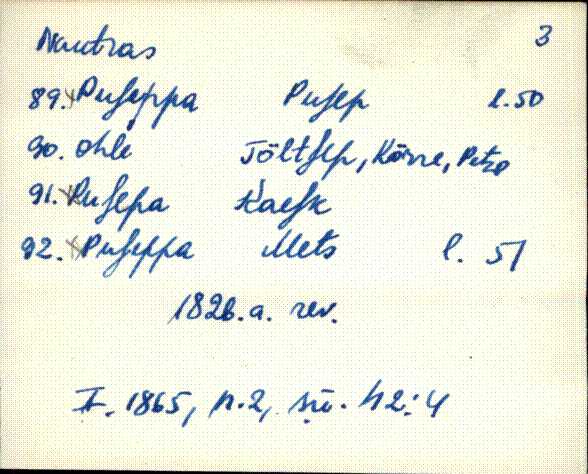 Nautras 3
89. Puseppa Pusep l. 50
90. Ohle Töltsep, Kõrre,
91. Pusepa Kaesk
92. Puseppa Mets l. 51
1826. a. rev.
F. 1865, n. 2, sü. 42:4